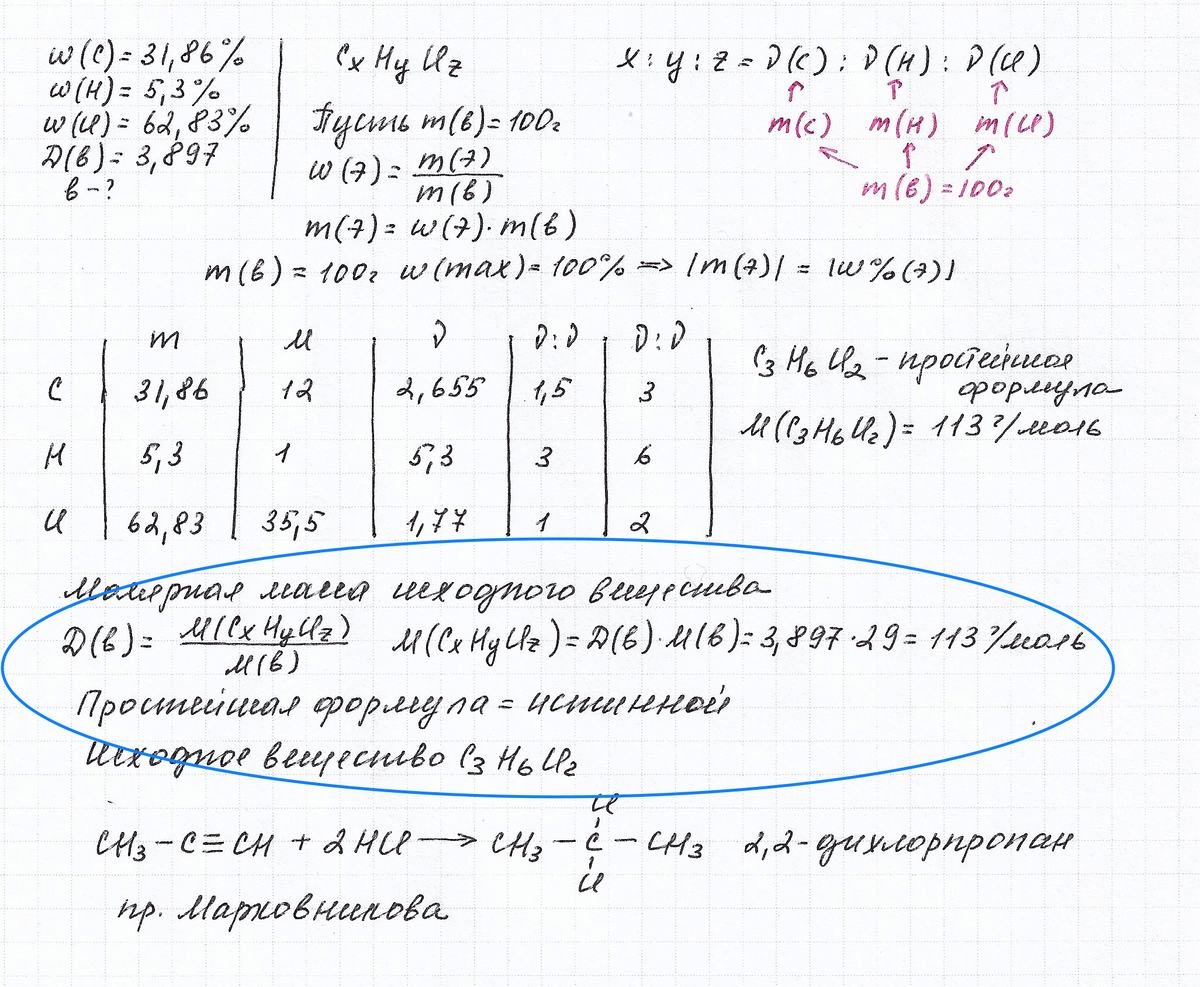 w(C) = 31,86%
w(H) = 5,3%
w(Cl) = 62,83%
D(в) = 3,897
в - ?
CxHyClz
Пусть m(в) = 100г
w(э) = m(э)/m(в)
m(э) = w(э)·m(в)
m(в) = 100г w(max) = 100% => |m(э)| = |w%(э)|
x : y : z = ν(C) : ν(H) : ν(Cl)
m(C) m(H) m(Cl)
m(в) = 100г
m M ν ν:ν ν:ν
C 31,86 12 2,655 1,5 3
H 5,3 1 5,3 3 6
Cl 62,83 35,5 1,77 1 2
C3H6Cl2 - простейшая
формула
M(C3H6Cl2) = 113 г/моль
Молярная масса исходного вещества
D(в) = M(CxHyClz)/M(в) M(CxHyClz) = D(в)·M(в) = 3,897·29 = 113 г/моль
Простейшая формула = истинной
Исходное вещество C3H6Cl2
Cl
CH3 - C ≡ CH + 2HCl → CH3 - C - CH3 2,2-дихлорпропан
Cl
пр. Марковникова